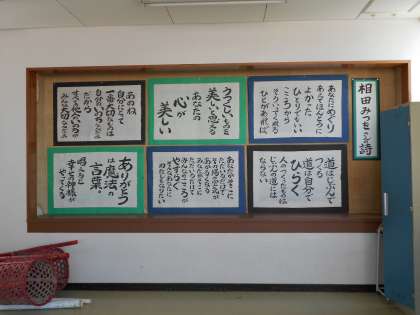 相田みつをさんの詩
あなたにめぐり
あえてほんとうに
よかった
ひとりでもいい
こころから
そういってくれる
ひとがあれば
うつくしいものを
美しいと思える
あなたの
心が
美しい
あのね
自分にとって
一番大切なものは
自分のいのちなんだよ
だから
すべての他人のいのちが
みんな大切なんだよ
道はじぶんで
つくる
道は自分で
ひらく
人のつくったものは
じぶんの道には
ならない
あなたがそこに
ただいるだけで
その場の空気が
あかるくなる
あなたがそこに
ただいるだけで
みんなのこころが
やすらぐ
そんなあなたに
わたしもなりたい
ありがとう
は魔法の
言葉。